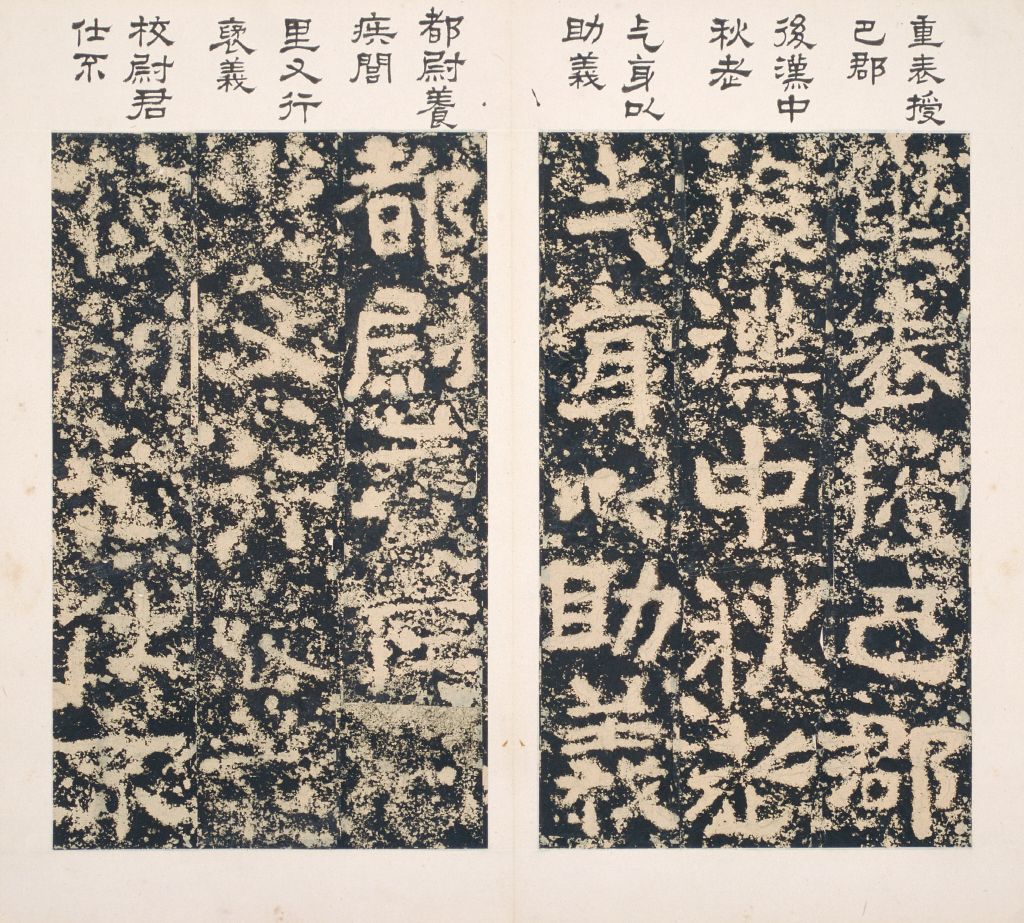 重表授
巴郡
後漢中
秋老
乞身以
助義
都尉養
疾閭
里又行
褒義
校尉君
仕不
重表授巴郡
後漢中秋老
乞身以助義
都尉養疾
又行
仕不